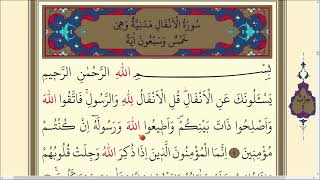 سُورَةُ الْاَنْفَالِ مَدَنِيَّةٌ وَهِىَ
خَمْسٌ وَسَبْعُونَ اٰيَةً
بِسْمِ اللّٰهِ الرَّحْمٰنِ الرَّحِيمِ
يَسْـَٔلُونَكَ عَنِ الْاَنْفَالِۜ قُلِ الْاَنْفَالُ لِلّٰهِ وَالرَّسُولِۚ فَاتَّقُوا اللّٰهَ
وَاَصْلِحُوا ذَاتَ بَيْنِكُمْۖ وَاَطِيعُوا اللّٰهَ وَرَسُولَهُٓ اِنْ كُنْتُمْ
مُؤْمِنِينَ ١ اِنَّمَا الْمُؤْمِنُونَ الَّذِينَ اِذَا ذُكِرَ اللّٰهُ وَجِلَتْ قُلُوبُهُمْ